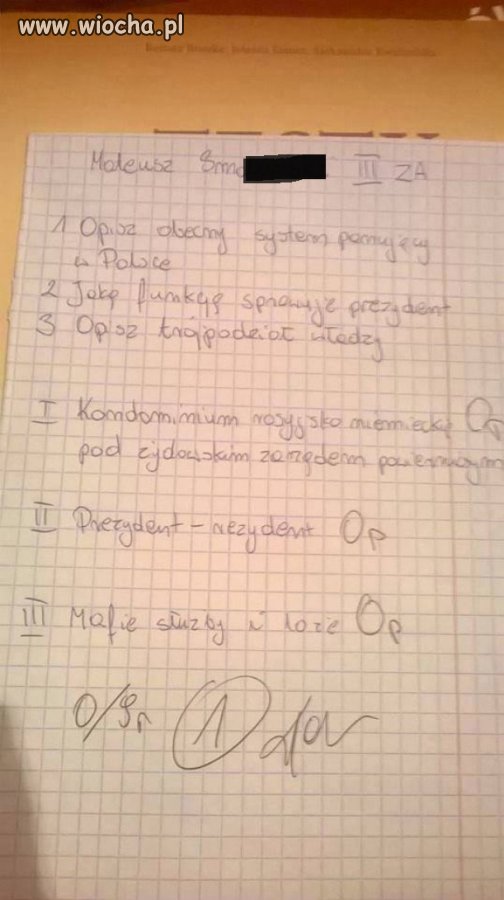 www.wiocha.pl
Mateusz III ZA
1 Opisz obecny system panujący
w Polsce
2 Jaką funkcję sprawuje prezydent
3 Opisz trójpodział władzy
I Kondominium rosyjsko niemieckie 0p
pod żydowskim zarządem powierniczym
II Prezydent - rezydent 0p
III Mafie służby i loże 0p
0/9p 1